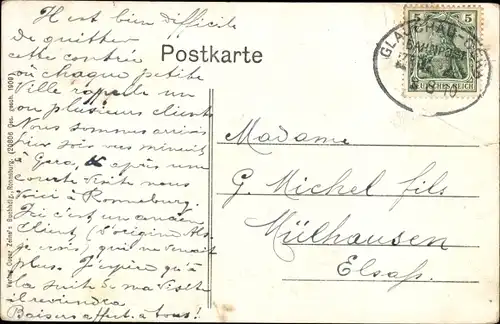 Il est bien difficile
de quitter
cette contrée
où chaque petite
Ville rappelle un
ou plusieurs clients
Nous sommes arrivés
hier soir vers minuit
à Gera, & après une
courte visite nous
voici à Ronneburg.
Ici c'est un ancien
Client, (d'origine Als.
je crois) qui ne venait
plus. J'espère qu'à
la suite de ma visite
il reviendra
Baisers affect. à tous!
Postkarte
Verlag Georg Zeine's Buchhdlg., Ronneburg. (20806 Ges. gesch. 1908)
5 5
DEUTSCHES REICH
GLAUCHAU
BAHNPOST
Madame
G. Michel fils
Mülhausen
Elsaß.